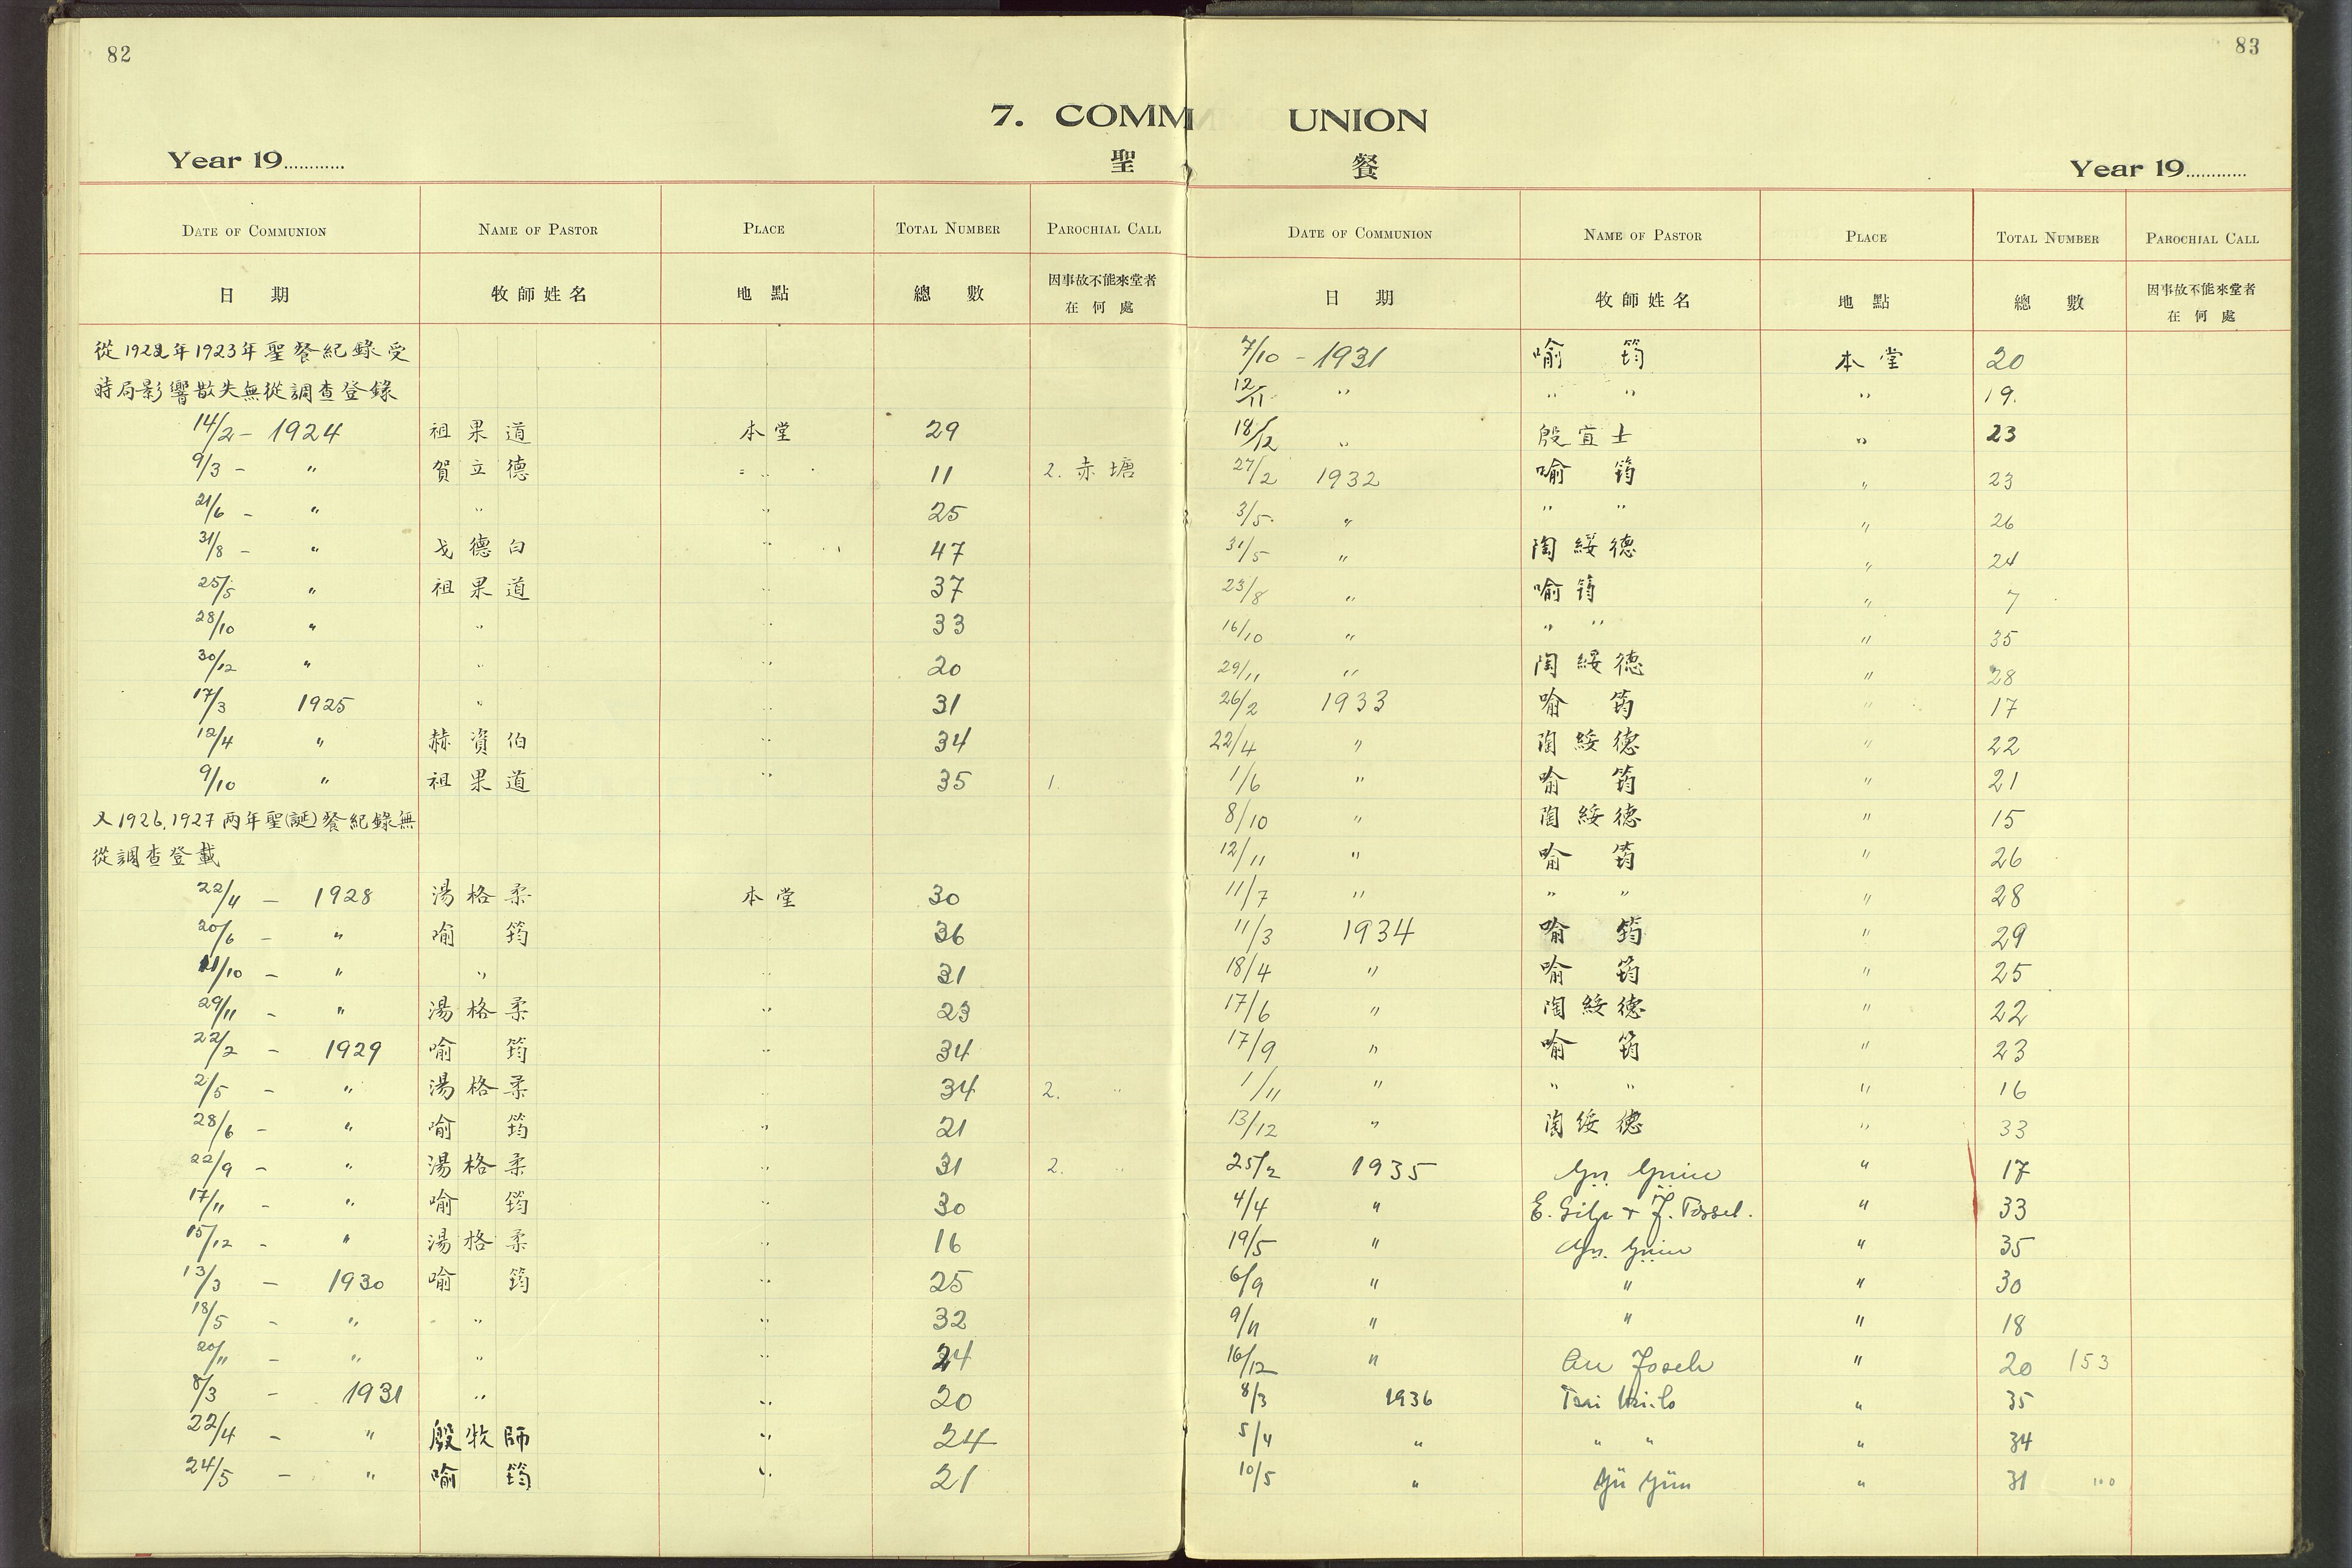 82
7. COMM
聖
Year 19............
DATE OF COMMUNION NAME OF PASTOR PLACE TOTAL NUMBER PAROCHIAL CALL
日 期 牧師姓名 地 點 總 數 因事故不能來堂者
在 何 處
從1922年1923年聖餐紀錄受
時局影響散失無從調查登錄
14/2 - 1924 祖果道 本堂 29
9/3 - 〃 賀立德 〃 11 2. 赤塘
21/6 - 〃 〃 〃 25
31/8 - 〃 戈德白 〃 47
25/5 〃 祖果道 〃 37
28/10 〃 〃 〃 33
30/12 〃 〃 〃 20
17/3 1925 〃 〃 31
12/4 〃 赫資伯 〃 34
9/10 〃 祖果道 〃 35 1. 〃
又1926, 1927兩年聖(誕)餐紀錄無
從調查登載
22/4 - 1928 湯格柔 本堂 30
20/6 - 〃 喻 筠 〃 36
11/10 - 〃 〃 〃 31
29/11 - 〃 湯格柔 〃 23
22/2 - 1929 喻 筠 〃 34
2/5 - 〃 湯格柔 〃 34 2. 〃
28/6 - 〃 喻 筠 〃 21
22/9 - 〃 湯格柔 〃 31 2. 〃
17/11 - 〃 喻 筠 〃 30
15/12 - 〃 湯格柔 〃 16
13/3 - 1930 喻 筠 〃 25
18/5 - 〃 〃 〃 32
20/11 - 〃 〃 〃 24
8/3 - 1931 〃 〃 20
22/4 - 〃 殷牧師 〃 24
24/5 - 〃 喻 筠 〃 21
83
UNION
餐
Year 19............
DATE OF COMMUNION NAME OF PASTOR PLACE TOTAL NUMBER PAROCHIAL CALL
日 期 牧師姓名 地 點 總 數 因事故不能來堂者
在 何 處
7/10 - 1931 喻 筠 本堂 20
12/11 〃 〃 〃 〃 19.
18/12 〃 殷宜士 〃 23
27/2 1932 喻 筠 〃 23
3/5 〃 〃 〃 〃 26
31/5 〃 陶綏德 〃 24
23/8 〃 喻筠 〃 7
16/10 〃 〃 〃 〃 35
29/11 〃 陶綏德 〃 28
26/2 1933 喻 筠 〃 17
22/4 〃 陶綏德 〃 22
1/6 〃 喻 筠 〃 21
8/10 〃 陶綏德 〃 15
12/11 〃 喻 筠 〃 26
11/7 〃 〃 〃 〃 28
11/3 1934 喻 筠 〃 29
18/4 〃 喻 筠 〃 25
17/6 〃 陶綏德 〃 22
17/9 〃 喻 筠 〃 23
1/11 〃 〃 〃 〃 16
13/12 〃 陶綏德 〃 33
25/2 1935 〃 17
4/4 〃 E. 〃 33
19/5 〃 〃 35
6/9 〃 〃 〃 30
9/11 〃 〃 〃 18
16/12 〃 〃 20 153
8/3 1936 Tsai 〃 35
5/4 〃 〃 〃 〃 34
10/5 〃 Yü Yün 〃 31 100